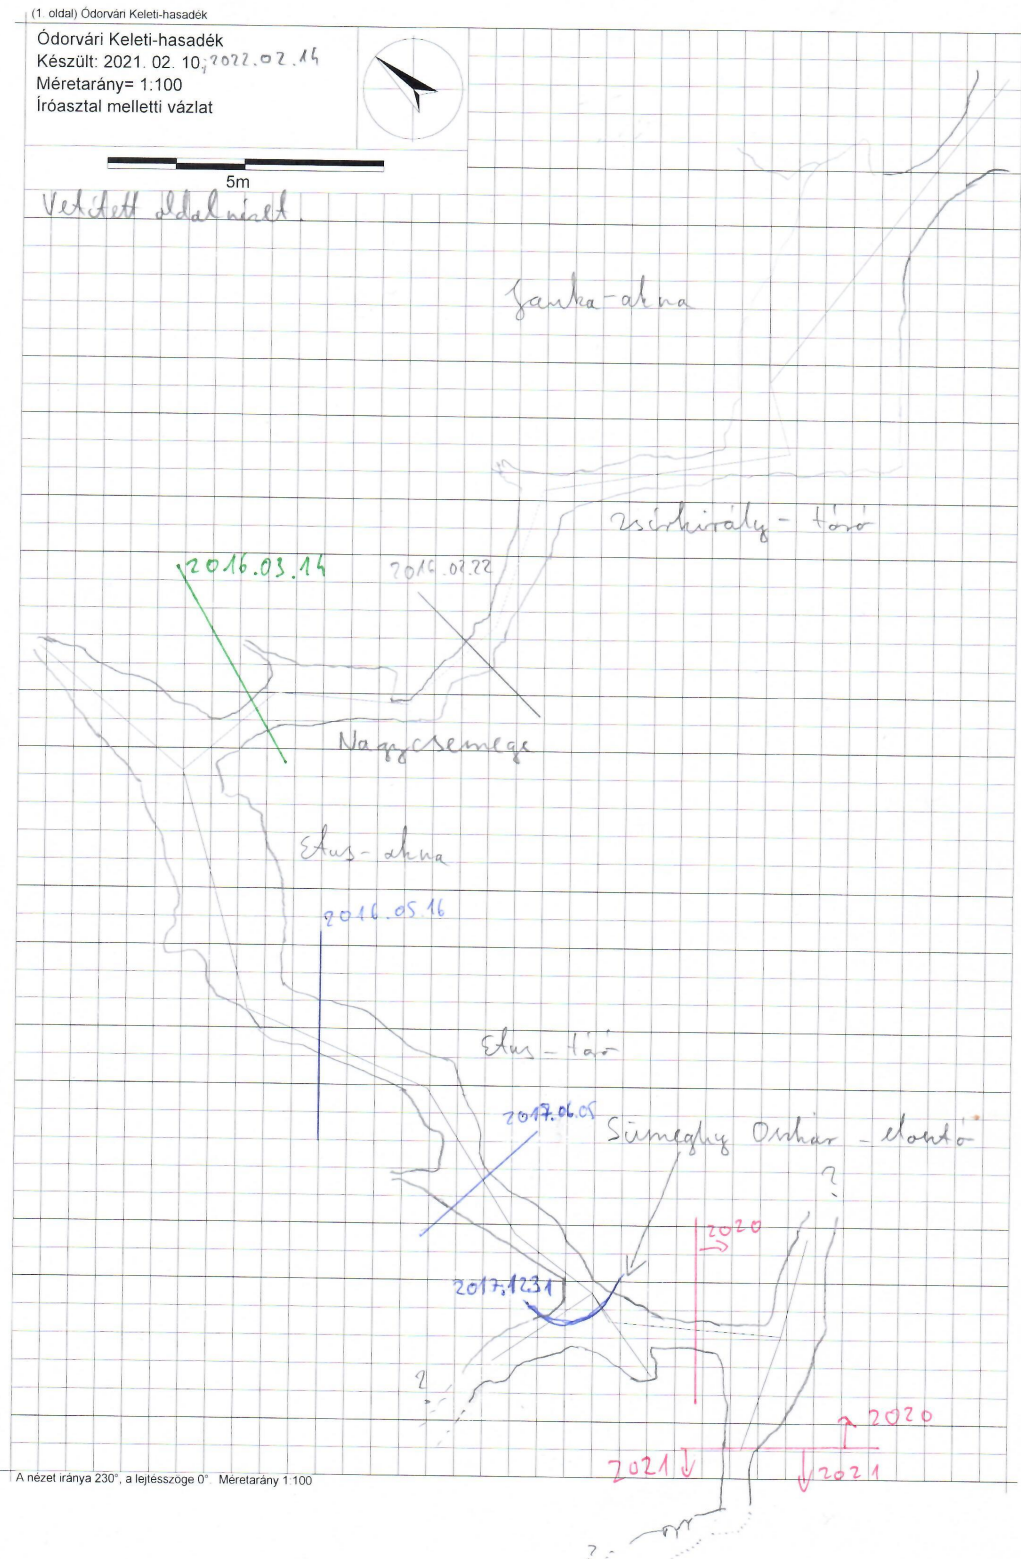 (1. oldal) Ódorvári Keleti-hasadék
Ódorvári Keleti-hasadék
Készült: 2021. 02. 10; 2022.02.14
Méretarány= 1:100
Íróasztal melletti vázlat
5m
Vetített oldalnézet.
Janka-akna
Zsírkirály-táró
2016.03.14
2016.02.22
Nagycsemege
Etus-akna
2016.05.16
Etus-táró
2017.06.05
Sümeghy Oszkár-elosztó
?
2020
2017.12.31
?
2020
2021
2021
A nézet iránya 230°, a lejtésszöge 0°. Méretarány 1:100
?